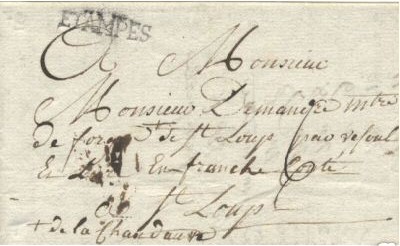 ETAMPES
A Monsieur
Monsieur Demangee mtre
de forge de St Loup par vesoul
En franche Comté
a St Loup
+ de la Chaudeau